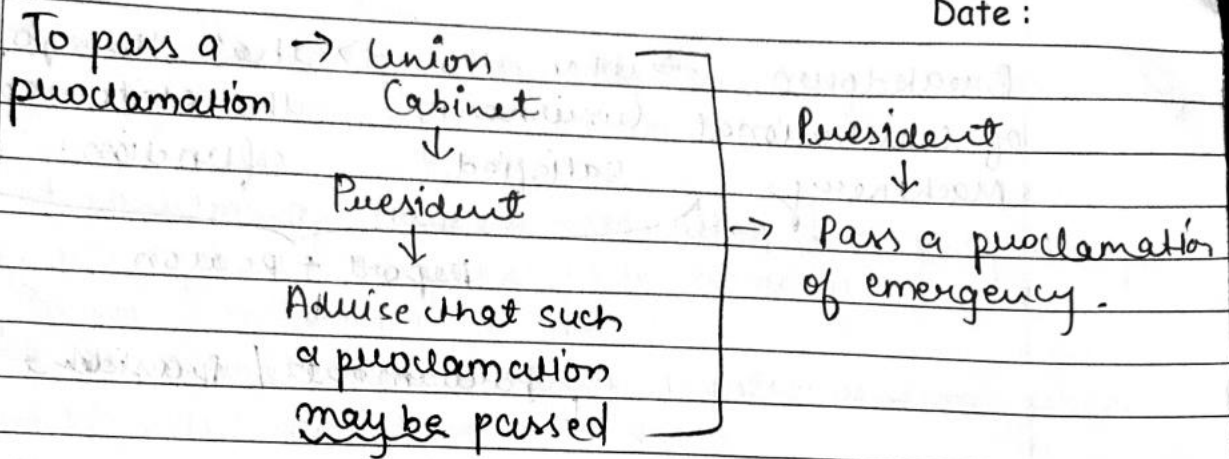 Date :
To pass a → Union
proclamation Cabinet
↓
President
↓
Advise that such
a proclamation
may be passed
President
↓
→ Pass a proclamation
of emergency.